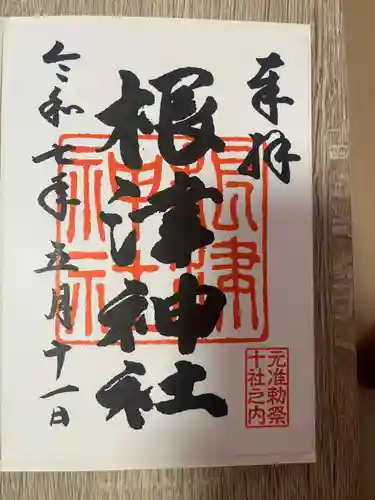 奉拝
根津神社
令和七年五月十一日
根津
神社
元准勅祭
十社之内